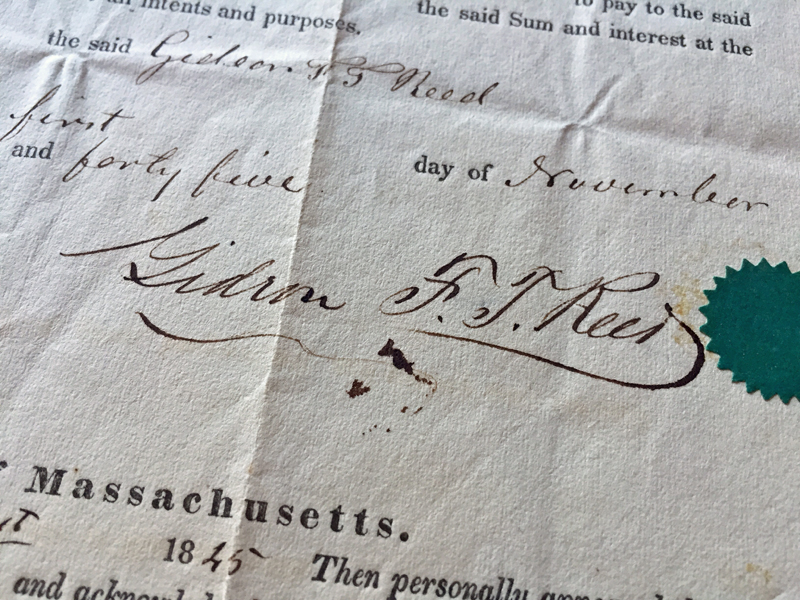 all intents and purposes.
to pay to the said
the said Sum and interest at the
the said Gideon F T Reed
first
day of November
and forty five
Gideon F. T. Reed
Massachusetts.
1845 Then personally
and